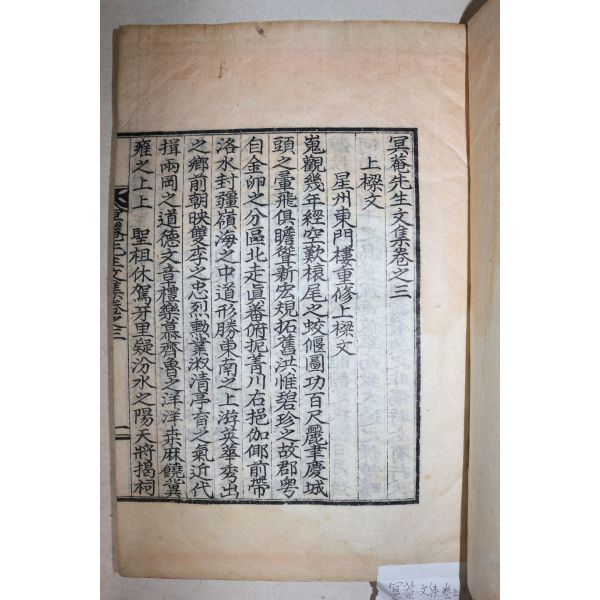 冥菴先生文集卷之三
上樑文
星州東門樓重修上樑文
嵬觀幾年經空歎榱尾之蛟偃圖功百尺麗聿慶城
頭之翬飛俱瞻聳新宏規拓舊洪惟碧珍之故郡粤
自金卯之分區北走眞蕃俯扼菁川右挹伽倻前帶
洛水封疆嶺海之中道形勝東南之上游英華秀出
之鄕前朝映雙李之忠烈勳業淑清亭育之氣近代
揖兩岡之道德文章禮樂慕齊魯之洋洋桒麻饒冀
雍之上上 聖祖休駕牙里疑汾水之陽天將揭祠
冥菴先生文集卷之三
一
冥菴文集卷上